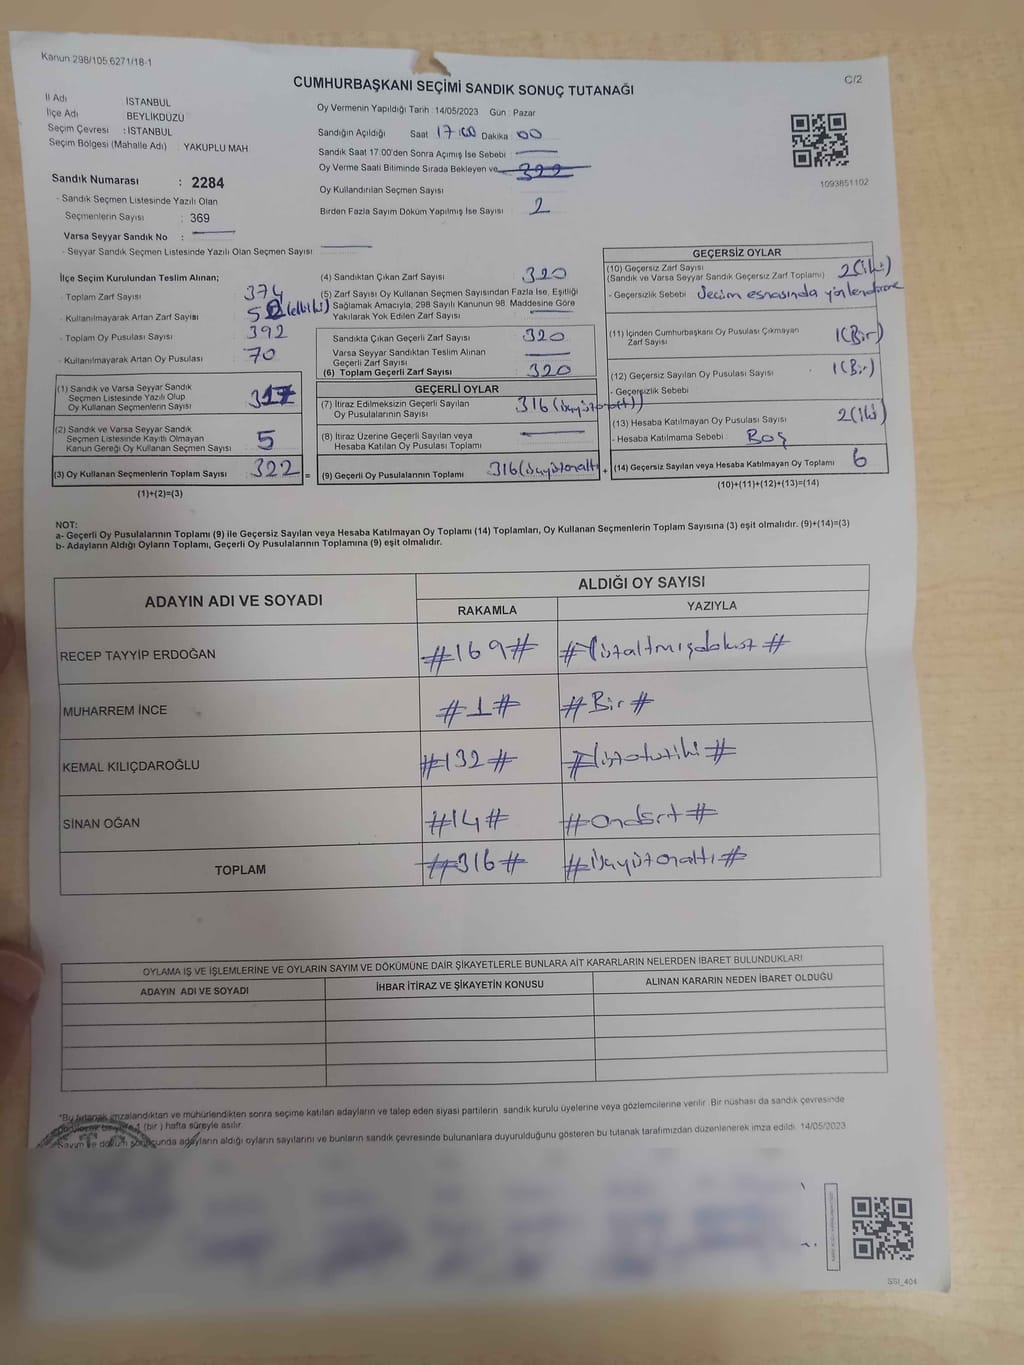 Kanun 298/105 6271/18-1
C/2
CUMHURBAŞKANI SEÇİMİ SANDIK SONUÇ TUTANAĞI
İl Adı İSTANBUL
İlçe Adı BEYLİKDÜZÜ
Seçim Çevresi : İSTANBUL
Seçim Bölgesi (Mahalle Adı) YAKUPLU MAH
Sandık Numarası : 2284
- Sandık Seçmen Listesinde Yazılı Olan
Seçmenlerin Sayısı : 369
Varsa Seyyar Sandık No :
- Seyyar Sandık Seçmen Listesinde Yazılı Olan Seçmen Sayısı
Oy Vermenin Yapıldığı Tarih : 14/05/2023 Gün : Pazar
Sandığın Açıldığı Saat 17:00 Dakika 00
Sandık Saat 17:00'den Sonra Açımış İse Sebebi
Oy Verme Saati Bitiminde Sırada Bekleyen ve 322
Oy Kullandırılan Seçmen Sayısı
Birden Fazla Sayım Döküm Yapılmış İse Sayısı 2
1093851102
İlçe Seçim Kurulundan Teslim Alınan;
- Toplam Zarf Sayısı 374
- Kullanılmayarak Artan Zarf Sayısı 52 (elli iki)
- Toplam Oy Pusulası Sayısı 392
- Kullanılmayarak Artan Oy Pusulası 70
(1) Sandık ve Varsa Seyyar Sandık
Seçmen Listesinde Yazılı Olup
Oy Kullanan Seçmenlerin Sayısı 317
(2) Sandık ve Varsa Seyyar Sandık
Seçmen Listesinde Kayıtlı Olmayan
Kanun Gereği Oy Kullanan Seçmen Sayısı 5
(3) Oy Kullanan Seçmenlerin Toplam Sayısı 322 =
(1)+(2)=(3)
(4) Sandıktan Çıkan Zarf Sayısı 320
(5) Zarf Sayısı Oy Kullanan Seçmen Sayısından Fazla İse, Eşitliği
Sağlamak Amacıyla, 298 Sayılı Kanunun 98. Maddesine Göre
Yakılarak Yok Edilen Zarf Sayısı
Sandıkta Çıkan Geçerli Zarf Sayısı 320
Varsa Seyyar Sandıktan Teslim Alınan
Geçerli Zarf Sayısı
(6) Toplam Geçerli Zarf Sayısı 320
GEÇERLİ OYLAR
(7) İtiraz Edilmeksizin Geçerli Sayılan
Oy Pusulalarının Sayısı 316 (üçyüzonaltı)
(8) İtiraz Üzerine Geçerli Sayılan veya
Hesaba Katılan Oy Pusulası Toplamı
(9) Geçerli Oy Pusulalarının Toplamı 316 (üçyüzonaltı +
GEÇERSİZ OYLAR
(10) Geçersiz Zarf Sayısı
(Sandık ve Varsa Seyyar Sandık Geçersiz Zarf Toplamı) 2 (iki)
- Geçersizlik Sebebi Seçim esnasında yönlendirme
(11) İçinden Cumhurbaşkanı Oy Pusulası Çıkmayan
Zarf Sayısı 1 (Bir)
(12) Geçersiz Sayılan Oy Pusulası Sayısı 1 (Bir)
- Geçersizlik Sebebi
(13) Hesaba Katılmayan Oy Pusulası Sayısı 2 (iki)
- Hesaba Katılmama Sebebi Boş
(14) Geçersiz Sayılan veya Hesaba Katılmayan Oy Toplamı 6
(10)+(11)+(12)+(13)=(14)
NOT:
a- Geçerli Oy Pusulalarının Toplamı (9) ile Geçersiz Sayılan veya Hesaba Katılmayan Oy Toplamı (14) Toplamları, Oy Kullanan Seçmenlerin Toplam Sayısına (3) eşit olmalıdır. (9)+(14)=(3)
b- Adayların Aldığı Oyların Toplamı, Geçerli Oy Pusulalarının Toplamına (9) eşit olmalıdır.
ADAYIN ADI VE SOYADI ALDIĞI OY SAYISI
RAKAMLA YAZIYLA
RECEP TAYYİP ERDOĞAN #169# #Yüzaltmışdokuz#
MUHARREM İNCE #1# #Bir#
KEMAL KILIÇDAROĞLU #132# #Yüzotuziki#
SİNAN OĞAN #14# #Ondört#
TOPLAM #316# #Üçyüzonaltı#
OYLAMA İŞ VE İŞLEMLERİNE VE OYLARIN SAYIM VE DÖKÜMÜNE DAİR ŞİKAYETLERLE BUNLARA AİT KARARLARIN NELERDEN İBARET BULUNDUKLARI
ADAYIN ADI VE SOYADI İHBAR İTİRAZ VE ŞİKAYETİN KONUSU ALINAN KARARIN NEDEN İBARET OLDUĞU
*Bu tutanak imzalandıktan ve mühürlendikten sonra seçime katılan adayların ve talep eden siyasi partilerin sandık kurulu üyelerine veya gözlemcilerine verilir. Bir nüshası da sandık çevresinde
1 (bir) hafta süreyle asılır.
Sayım ve döküm sonucunda adayların aldığı oyların sayılarını ve bunların sandık çevresinde bulunanlara duyurulduğunu gösteren bu tutanak tarafımızdan düzenlenerek imza edildi. 14/05/2023
SSI_404